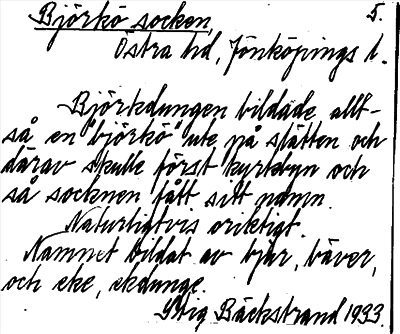 Björkö socken, 5.
Östra hd, Jönköpings l.
Björkdungen bildade allt-
så en "björkö" ute på slätten och
därav skulle först kyrkbyn och
så socknen fått sitt namn.
Naturligtvis oriktigt.
Namnet bildat av bjur, bäver,
och eke, ekdunge.
Stig Bäckstrand 1933.